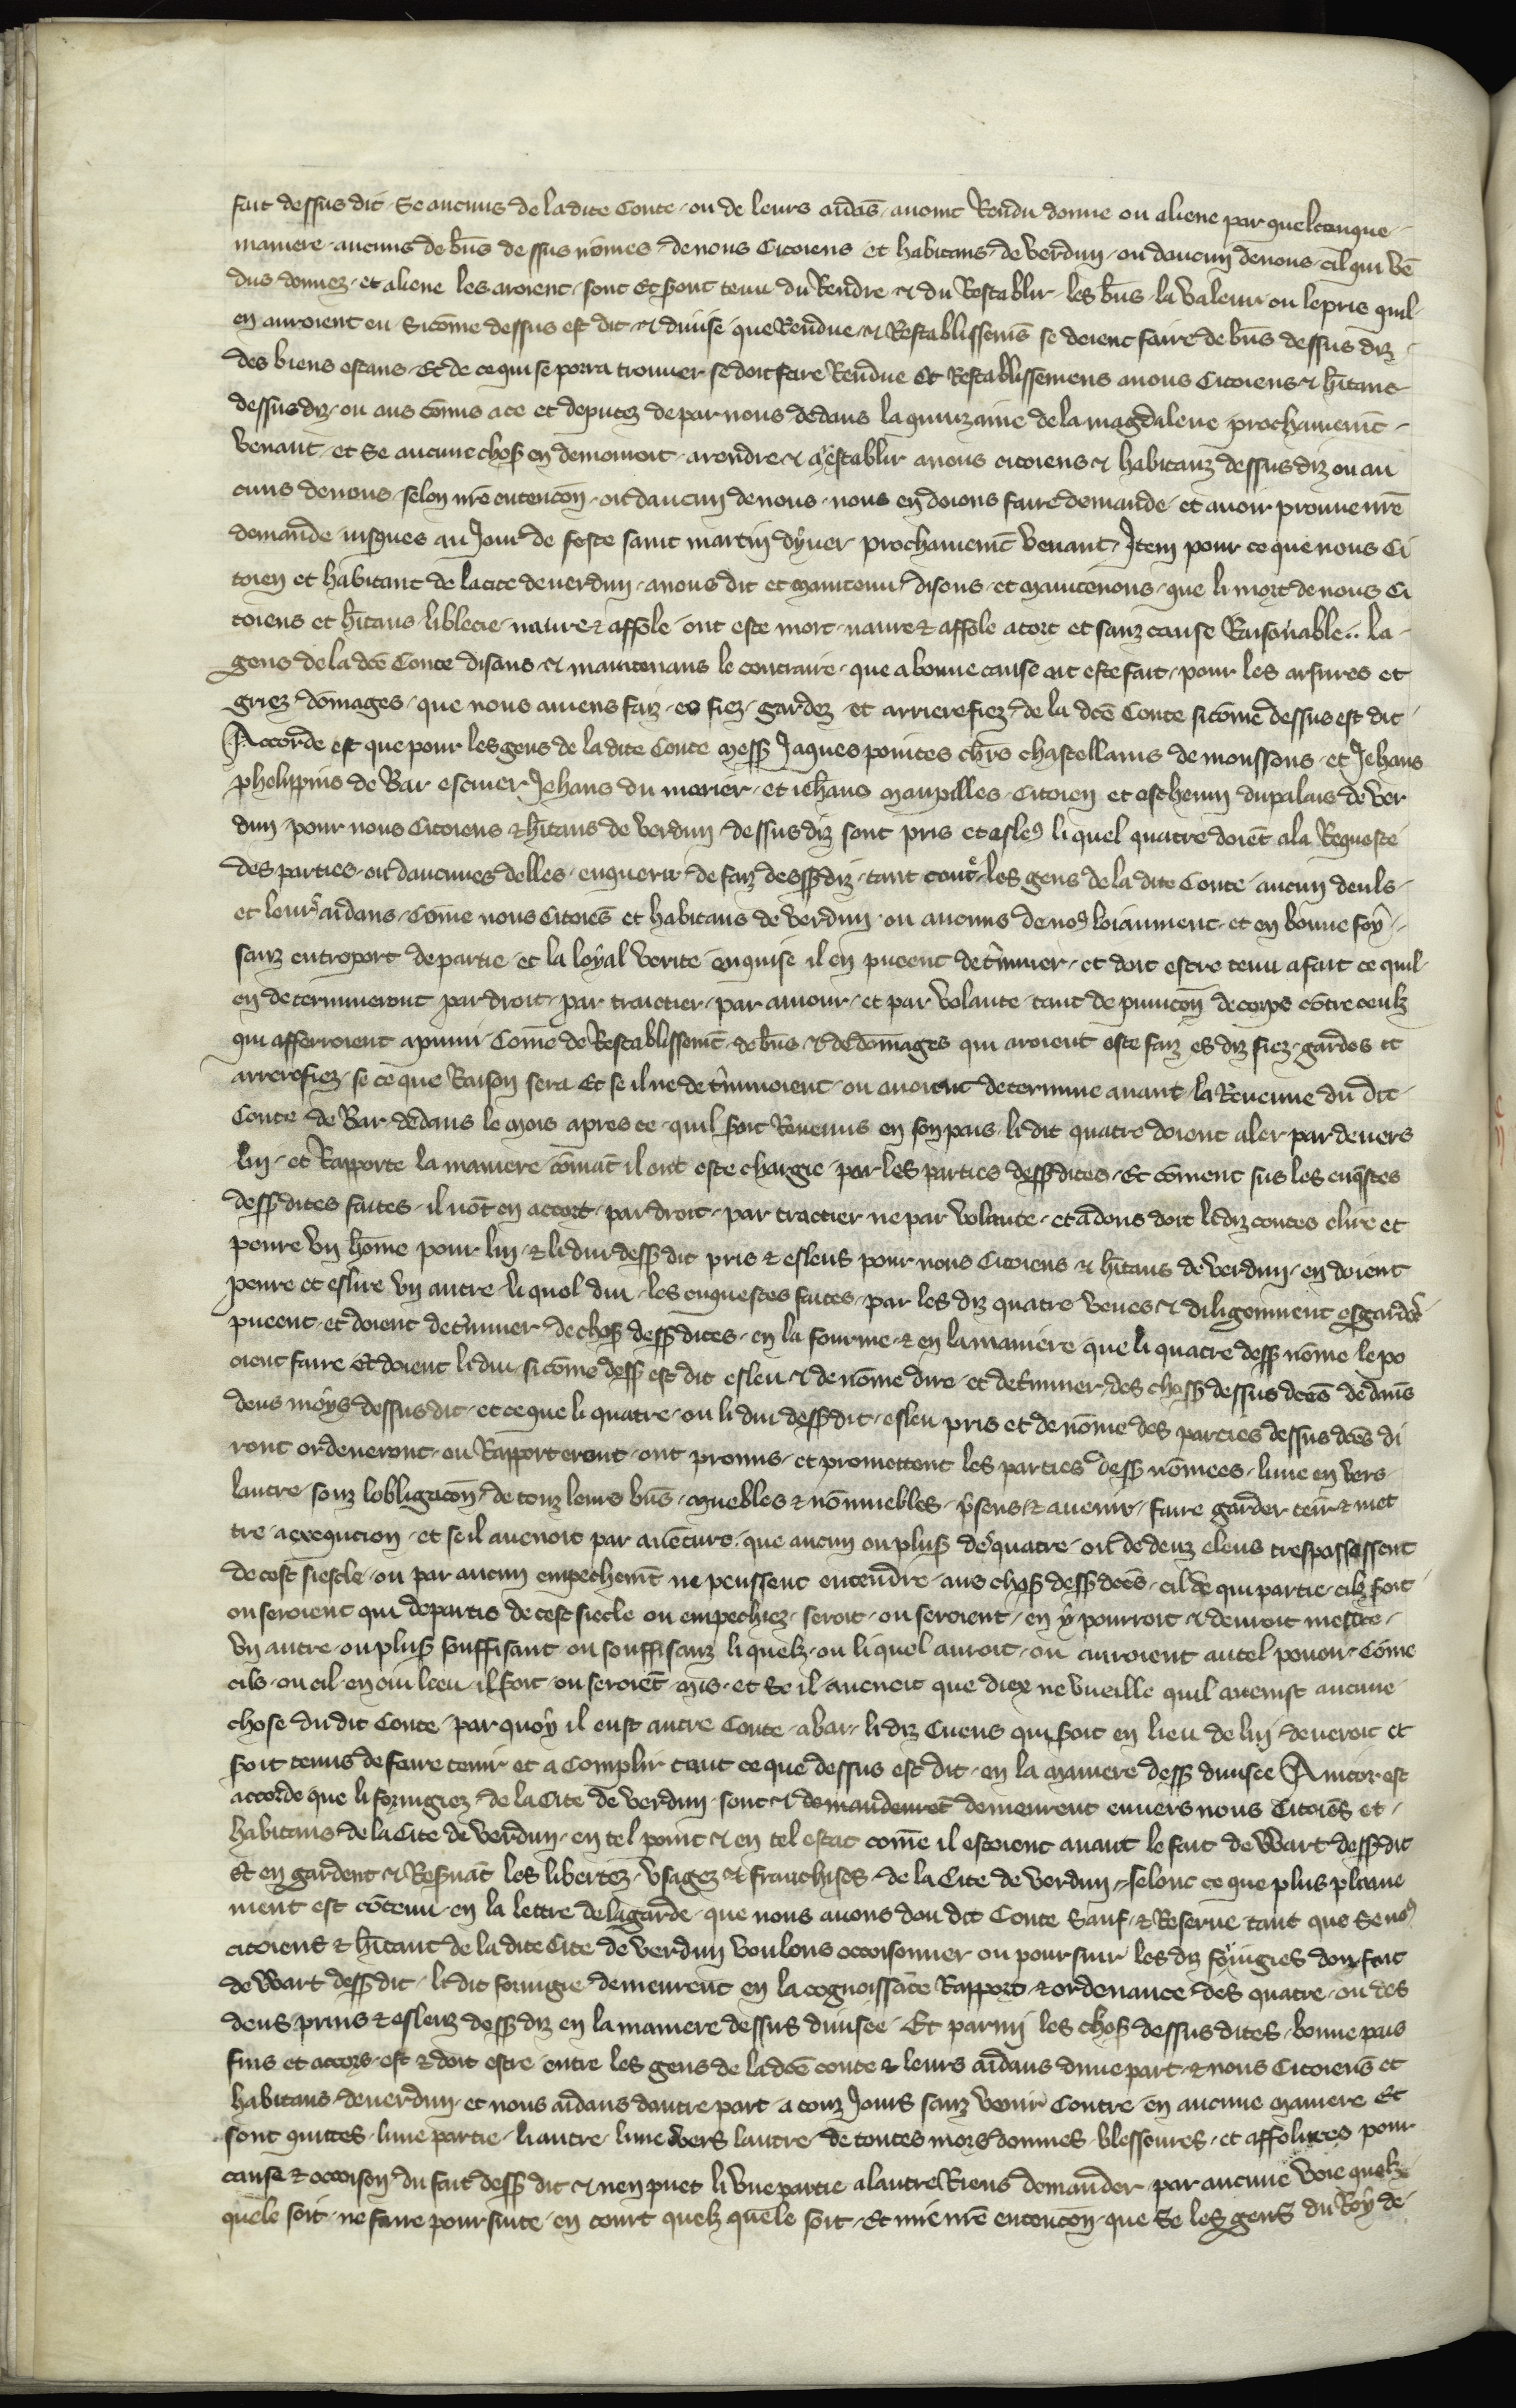 fait dessus dit · Se aucuns de la dite Conte · ou de leurs aidās · auoiēt Rendu donne ou aliene par quelconque
maniere · aucuns de bn̄s dessus nōmes · de nous Citoiens et habitans · de verdun · ou daucun denous · cil qui vē
dus donnez · et aliene les aroient · sont Et seront tenu du Rendre · & du Restablir · les bn̄s · la valeur ou le pris quil
en auroient eu · Sicōme dessus est dit · & diuise que Rendue · & Restablissemēs se doient faire de bn̄s dessus diz ·
des biens estans · Et de ce qui se porra trouuer se doit faire Rendue Et Restablissemens anous Citoiens & hītans
dessus diz · ou aus cōmis ace et deputez de par nous dedans la quinzaine de la magdalene prochainemēt ·
venant · et Se aucune chose en demouroit · arendre & a restablir anous citoiens & habitanz dessus diz ou au
cuns denous · selon nr̄e entencōn · ou daucun denous · nous en doions faire demande · et auoir prouue nr̄e
demande · iusques au Jour de feste saint martin dyuer prochainemēt venant · Item pour ce que nous Ci
toien et habitant de la cite de uerdun · auons dit et maintenu · disons · et maintenons · que li mort de nous Ci
toiens et hītans · li blecie · naure & affole · ont este mort · naure & affole atort et sanz cause Raisonable · · la ·
gens de la dcē Conte disans & maintenans le contraire · que a bonne cause ait este fait · pour les arsures et
griez dōmages · que nous auiens faiz · es fiez · gardez · et arrierefiez · de la dcē Conte sicōme dessus est dit ·
Accorde est que pour les gens de la dite Conte mess Jaques pointes chr̄s chastellains de moussons · et Jehans
phelippins de Bar escuier Jehans du morier · et iehans maupilles · Citoien et escheuin du palais de ver
dun · pour nous Citoiens & hītans de verdun · dessus diz sont pris et esleuz li quel quatre doiēt ala Requeste
des parties · ou daucunes delles · enquerir · de faiz dessz diz · tant contr̄ les gens de la dite Conte · aucun deuls ·
et leurs aidans · Cōme nous Citoiēs et habitans de verdun · ou aucuns de nos loiaument · et en bonne foy ·
sanz entroport departie · et la loyal verite enquise il en pueent det̄miner · et doit estre tenu afait ce quil
en determineront par droit · par traictier · par amour · et par volante · tant de punicōn de corps cōtre ceulz
qui afferroient apunir · Cōme de Restablissemēt de bn̄s · & de dōmages qui aroient este faiz es diz fiez · gardes et
arrerefiez · se ce que Raison sera Et se il ne det̄minoient · ou auoient determine auant · la Reuenue du dit
Conte de Bar · dedans le mois apres ce · quil soit Reuenus en son pais · li dit quatre doient aler par deuers
lui · et Rapporte la maniere cōmāt il ont este chargie · par les parties dessz dites · Et cōment sus les enq̄stes
dessz dites faites · il nōt en accort · par droit · par traictier ne par volante · et adons doit li diz contes elire et
penre vn hōme pour lui · & li dui dessz dit pris & esleus pour nous Citoiens & hītans de verdun · en doient
penre et eslire vn autre · li quel dui · les enquestes faites · par les diz quatre veues & diligemment esgardees
pueent · et doient det̄miner de chose dessz dites · en la fourme · & en la maniere que li quatre dessz nōme le po
oient faire Et doient li dui · sicōme dessz est dit esleu & denōme dire · et det̄miner des chosz dessus dcēs dedans
deus moys dessus dit · et ce que li quatre · ou li dui dessz dit · esleu pris et denōme des parties dessus dcēs di
ront ordeneront · ou Rapporteront · ont promis · et promettent les parties dessz nōmees · lune en vers
lautre · souz lobligacōn · de touz leurs bn̄s · muebles & nōnmuebles · p̄sens & auenir · faire garder teīr & met
tre aexequcion · et se il auenoit par auēture · que aucun ou plusz de quatre · ou de deuz eleus trespassessent
de cest siescle · ou par aucun empechemēt ne peussent entendre · aus chosz dessz dcēs · cil de qui partie · cilz soit
ou seroient qui departis de cest siecle ou empechiez · seroit · ou seroient · en y pourroit & deuroit mettre ·
vn autre · ou plusz souffisant ou souffisanz li quelz · ou li quel auroit · ou auroient autel pouoir · Cōme
cils · ou cil · en cui lieu · il soit ou seroiēt mis · et Se il auenoit que diex ne vueille quil auenist aucune
chose du dit Conte · par quoy il eust autre Conte · abar · li diz Cuens qui soit en lieu de lui deueroit et
soit tenus de faire tenir et acomplir tout ce que dessus est dit · en la maniere dessz diuisee Aincor est
accorde que li foriugiez de la Cite de verdun · sont & demandeuret demeurent enuers nous Citoiēs et ·
habitans de la Cite de verdun · en tel point & en tel estat comē il estoient auant le fait de Wart dessz dit
Et en gardent & Resuāt les libertez · vsagez & franchises · de la Cite de verdun · selonc ce que plus plaine
ment est cōtenu · en la lettre de la garde · que nous auons dou dit Conte Sauf · & Reserue tant que Se noꝰ
citoiens & hītant de la dite Cite de verdun voulons occoisonner ou poursuir les diz foriugies dou fait
de Wart dessz dit · li dit foriugie demeurēt en la cognoissāce Rapport · & ordenance des quatre · ou des
deus prins & esleuz dessz diz en la maniere dessus diuisee · Et parmi les chosz dessus dites · bonne pais
fins et accors · est & doit estre entre les gens de la dcē conte & leurs aidans dune part · & nous Citoiens et
habitans de uerdun · et nous aidans dautre part · a touz Jours sanz venir Contre en aucune maniere Et
sont quittes · lune partie · li autre · lune vers lautre · de toutes mors dommes · blessoures · et affolures pour
cause & occoison du fait dessz dit & nen puet li vne partie alautre Riens demander · par aucune voie quelz
quele soit · ne faire poursuite · en court quelz quele soit · Et mie nr̄e entencōn · que Se les gens du Roy de ·